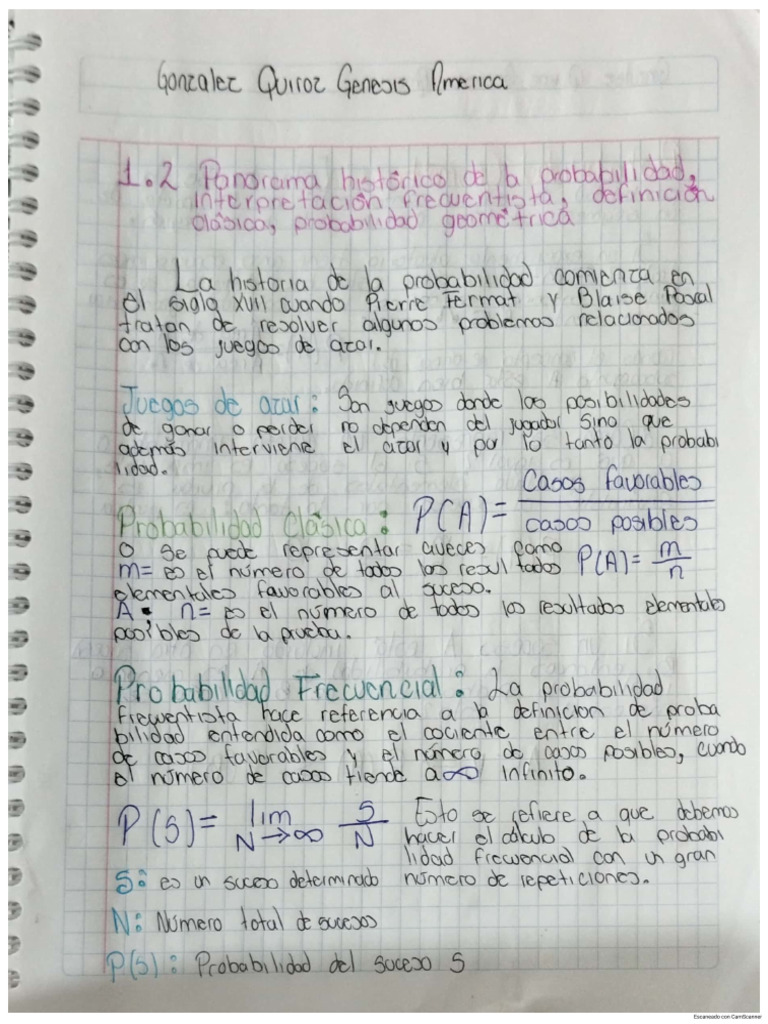 Gonzalez Quiroz Genesis America
1.2 Panorama histórico de la probabilidad,
interpretación frecuentista, definición
clásica, probabilidad geométrica
La historia de la probabilidad comienza en
el siglo XVII cuando Pierre Fermat y Blaise Pascal
tratan de resolver algunos problemas relacionados
con los juegos de azar.
Juegos de azar: Son juegos donde las posibilidades
de ganar o perder no dependen del jugador sino que
además interviene el azar y por lo tanto la probabi
lidad.
Probabilidad Clásica: P(A)= Casos favorables / casos posibles
O se puede representar aveces como P(A)= m/n
m= es el número de todos los resultados
elementales favorables al suceso.
A n= es el número de todos los resultados elementales
posibles de la prueba.
Probabilidad Frecuencial: La probabilidad
frecuentista hace referencia a la definicion de proba
bilidad entendida como el cociente entre el número
de casos favorables y el número de casos posibles, cuando
el número de casos tiende a ∞ infinito.
P(S)= lim N→∞ S/N Esto se refiere a que debemos
hacer el cálculo de la probabi
lidad frecuencial con un gran
número de repeticiones.
S: es un suceso determinado
N: Número total de sucesos
P(S): Probabilidad del suceso S
Escaneado con CamScanner